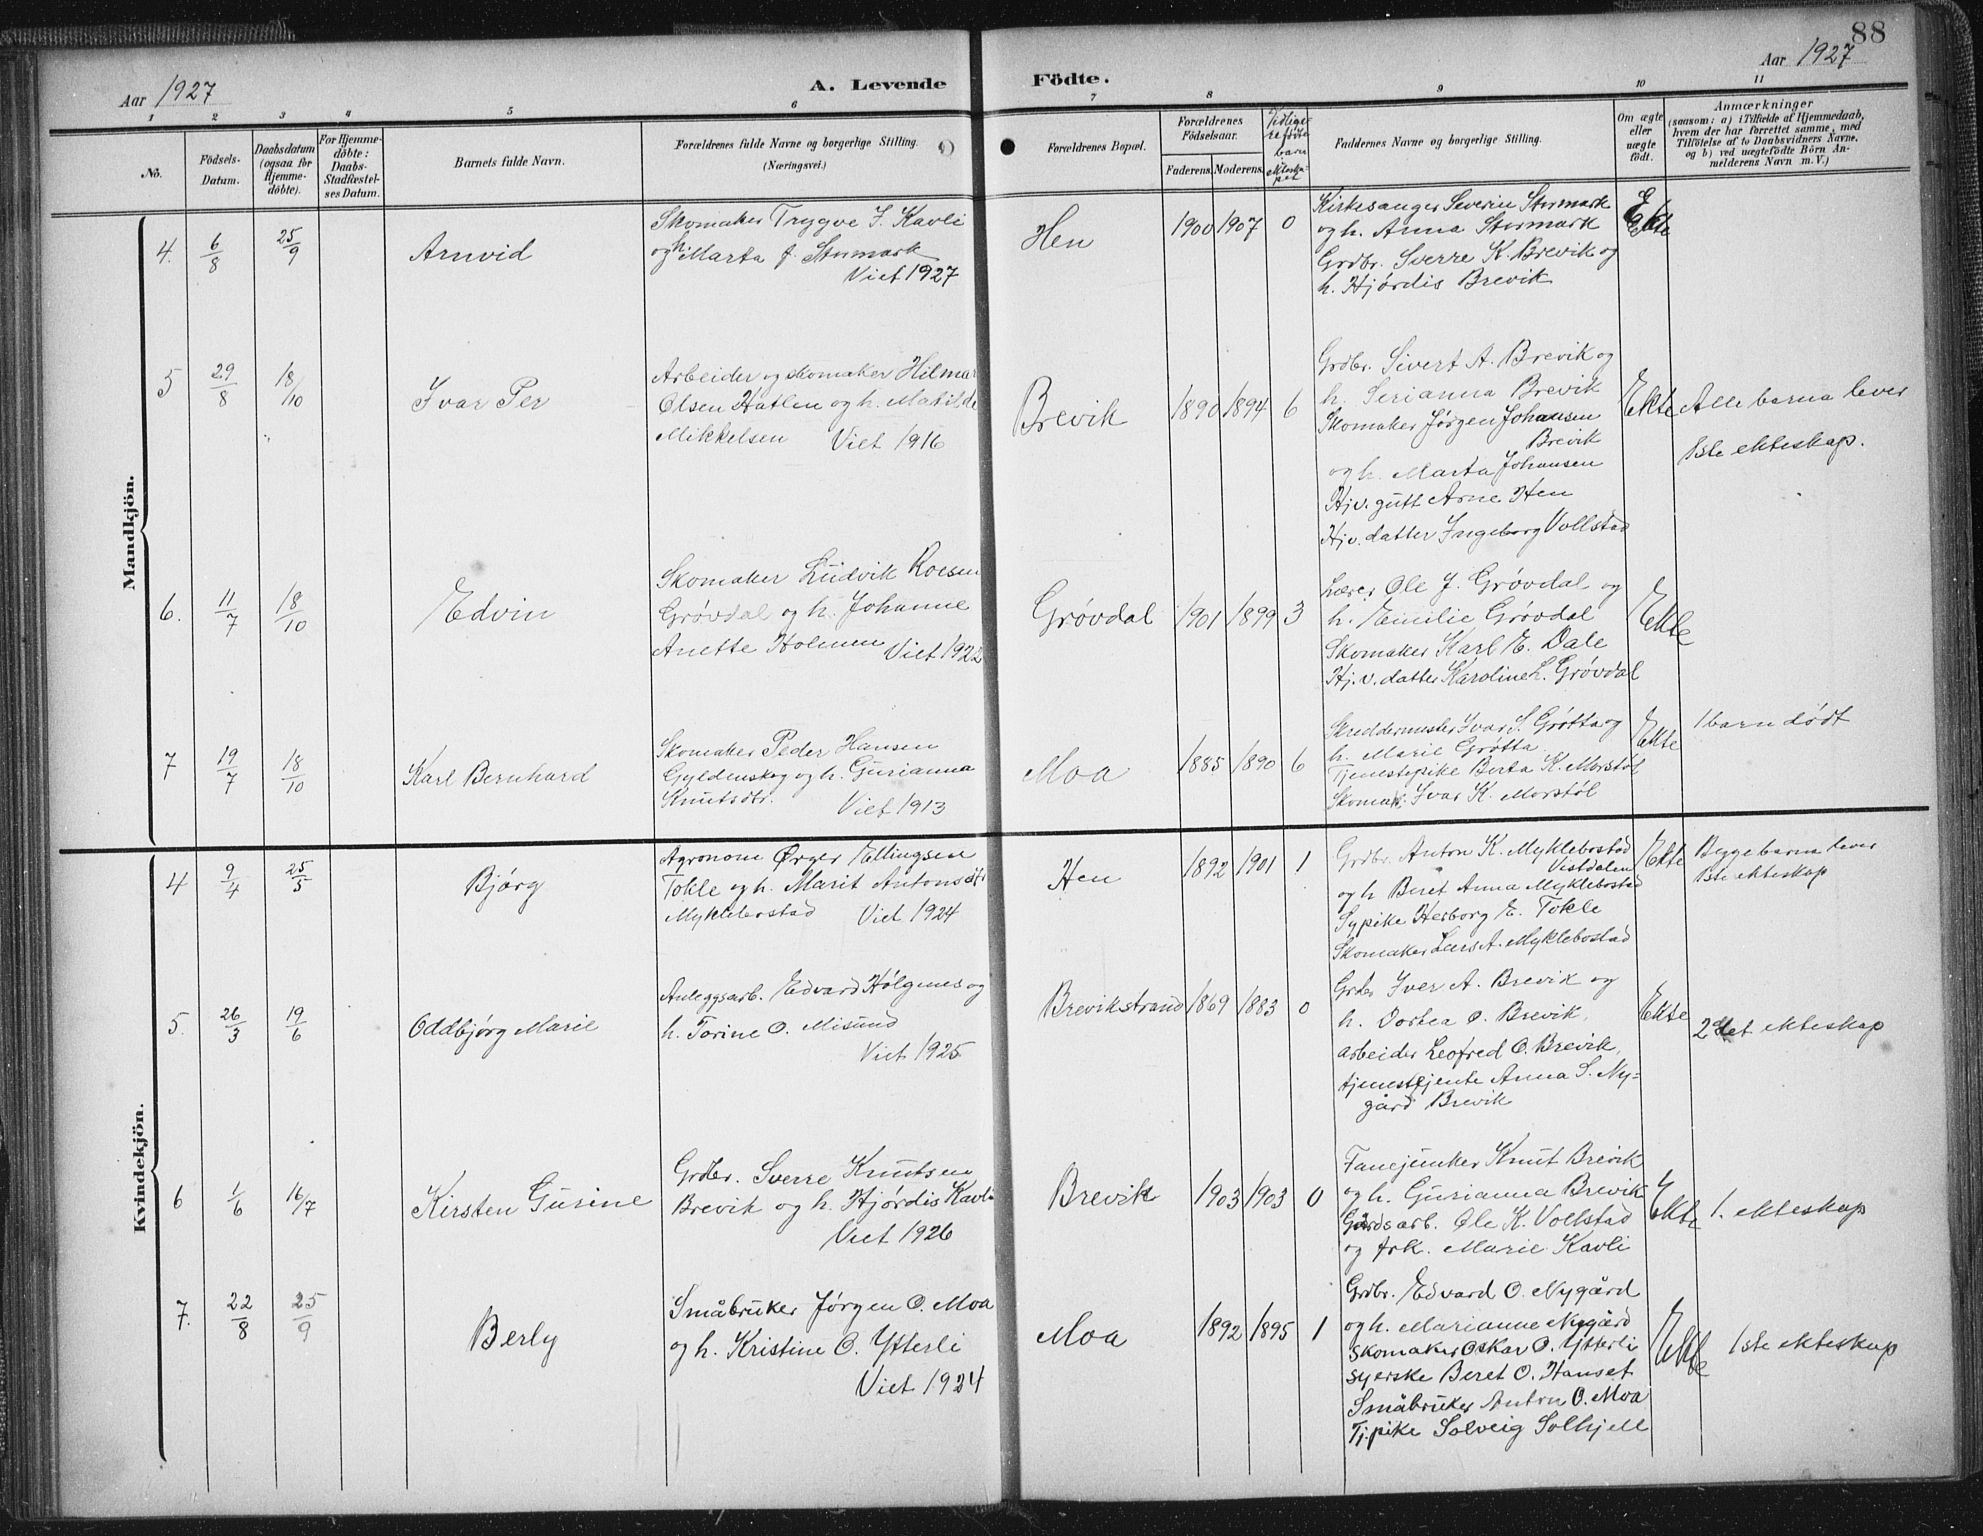 88
Aar 1927
A. Levende
Födte.
Aar 1927
1 2 3 4 5 6 7 8 9 10 11
No.
Födsels-
Datum.
Daabsdatum
(ogsaa for
Hjemme-
döbte).
For Hjemme-
döbte:
Daabs
Stadfæstel-
ses Datum.
Barnets fulde Navn.
Forældrenes fulde Navne og borgerlige Stilling.
(Næringsvei.)
Forældrenes Bopæl.
Forældrenes
Födselsaar.
Faderens. Moderens.
Tidlige-
re födte
barn i
ekteska-
pet
Faddernes Navne og borgerlige Stilling.
Om ægte
eller
uægte
födt.
Anmærkninger
(saasom: a) i Tilfælde af Hjemmedaab,
hvem der har forrettet samme, med
Tilföielse af to Daabsvidners Navne.
og b) ved uægtefödte Börn An-
melderens Navn m. V.)
Mandkjön.
4. 6/8 25/9 Arnvid
Skomaker Trygve J. Kavli
og h. Marta f. Stormark
Viet 1927
Hen 1900 1907 0
Kirkesanger Severin Stormark
og h. Anna Stormark
Grdbr. Sverre K. Brevik og
h. Hjørdis Brevik
Ekte
5 29/8 18/10 Ivar Per
Arbeider og skomaker Hilmar
Olsen Hatlen og h. Matilde
Mikkelsen Viet 1916
Brevik 1890 1894 6
Grdbr. Sivert A. Brevik og
h. Serianna Brevik
Skomaker Jørgen Johansen
Brevik
og h. Marta Johansen
Hjv. gutt Arne Hen
Hjv. datter Ingeborg Vollstad
Ekte
Alle barna lever
1ste ekteskap.
6. 11/7 18/10 Edvin
Skomaker Ludvik Roesen
Grøvdal og h. Johanne
Anette Holmen Viet 1922
Grøvdal 1901 1899 3
Lærer Ole J. Grøvdal og
h. Emilie Grøvdal
Skomaker Karl E. Dale
Hj.v. datter Karoline L. Grøvdal
Ekte
7 19/7 18/10 Karl Bernhard
Skomaker Peder Hansen
Gyldenskog og h. Gurianna
Knutsdtr. Viet 1913
Moa 1885 1890 6
Skreddermester Ivar S. Grøtta og
h. Marie Grøtta
Tjenestepike Berta K. Morstøl
Skomak. Ivar K. Morstøl
Ekte
1 barn dödt
Kvindekjön.
4 9/4 25/5 Bjørg
Agronom Ørger Ellingsen
Tokle og h. Marit Antonsdtr
Myklebostad Viet 1924
Hen 1892 1901 1
Grdbr. Anton K. Myklebostad
Vistdalen
og h Beret Anna Myklebostad
Sypike Herborg E. Tokle
Skomaker Lars A. Myklebostad
Ekte
Begge barna lever
1ste ekteskap
5. 26/3 19/6 Oddbjørg Marie
Anleggsarb. Edvard Hølgenes og
h. Torine O. Misund
Viet 1925
Brevikstrand 1869 1883 0
Grdbr Iver A. Brevik og
h. Dortea O. Brevik,
arbeider Leofred O. Brevik,
tjenestejente Anna S. Ny-
gård Brevik
Ekte
2det ekteskap
6 1/6 16/7 Kirsten Gurine
Grdbr. Sverre Knutsen
Brevik og h. Hjørdis Kavli
Viet 1926
Brevik 1903 1903 0
Fanejunker Knut Brevik
og h. Gurianna Brevik
Gårdsarb. Ole K. Vollstad
og frk. Marie Kavli
Ekte
1. ekteskap
7. 22/8 25/9 Berly
Småbruker Jørgen O. Moa
og h. Kristine O. Ytterli
Viet 1924
Moa 1892 1895 1
Grdbr. Edvard O. Nygård
og h. Marianne Nygård
Skomaker Oskar O. Ytterli
syerske Beret O. Hanset
Småbruker Anton O. Moa
Tj. pike Solveig Solhjell
Ekte
1ste ekteskap